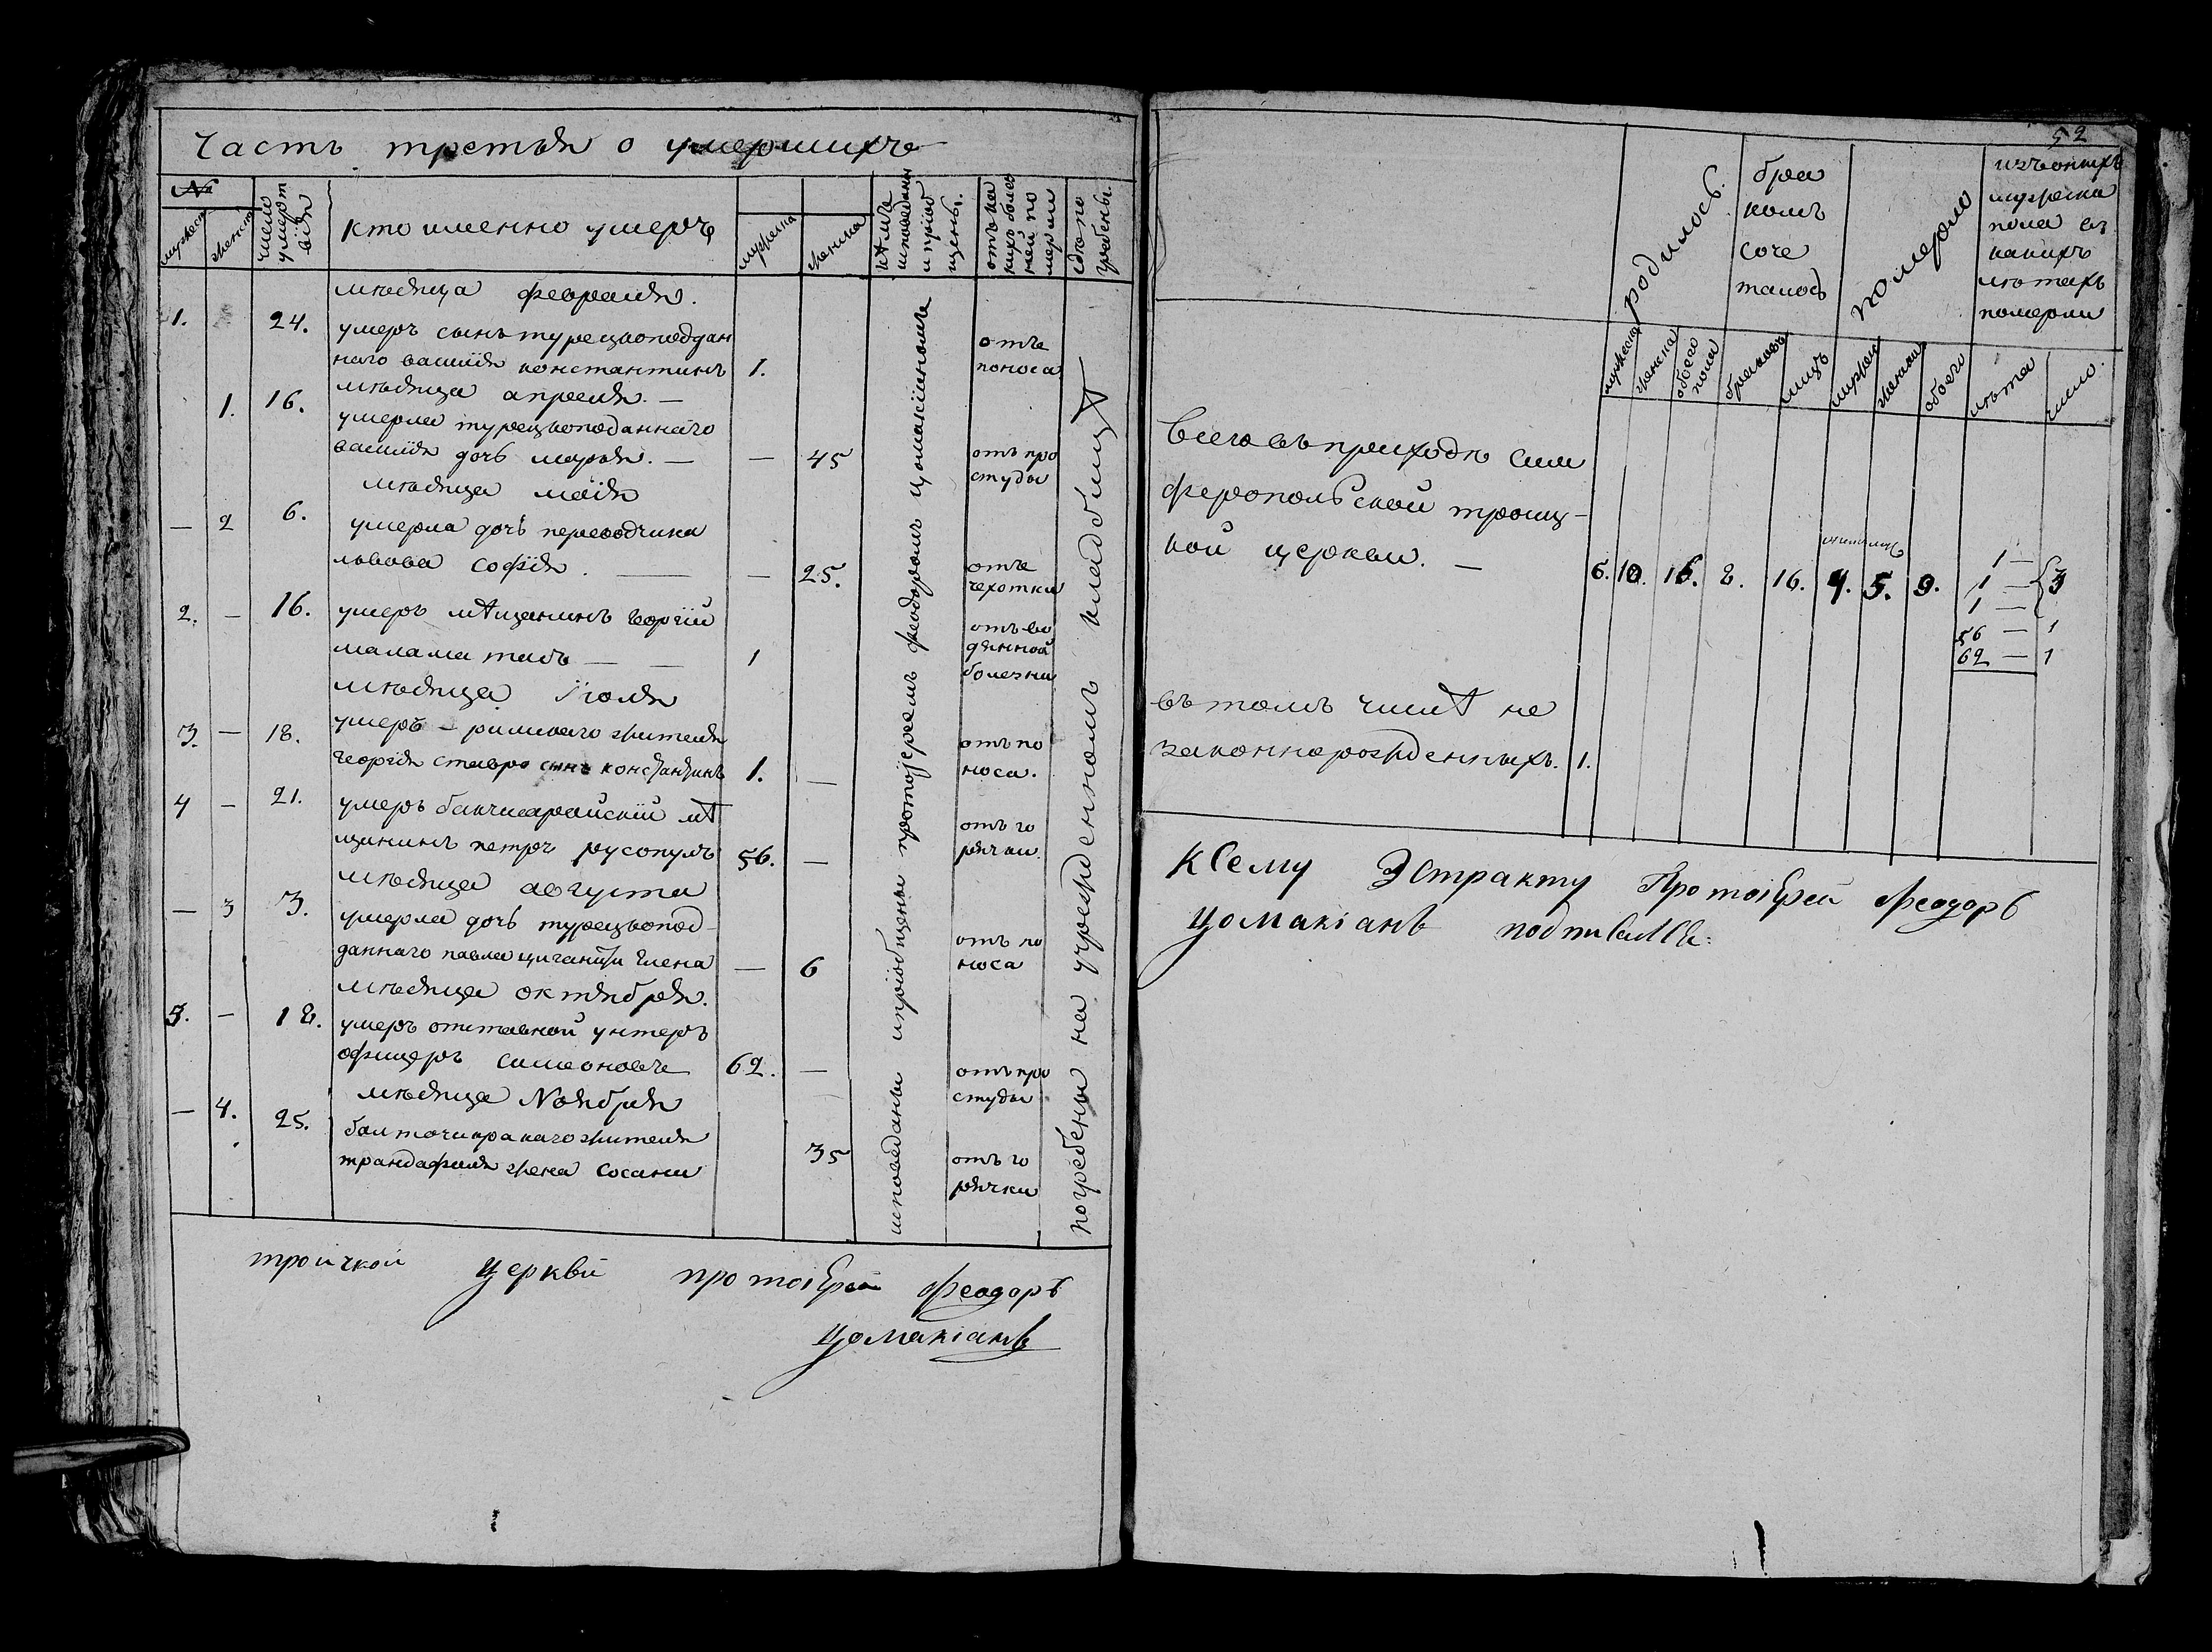 Часть третья о умершихъ
№
мужеск
женск
число умерт вія
кто именно умеръ
мужеска
женска
кѣмъ исповѣданы и пріоб щены.
отъ ка кихъ болез ней по мерли
гдѣ по гребены.
мѣсяца февраля.
1. 24. умеръ сынъ турецкоподдан
наго василія константинъ 1. отъ поноса
мѣсяца апреля. —
1. 16. умерла турецкоподаннаго
василія дочь марья. — — 45 отъ про студы
мѣсяца маія
— 2 6. умерла дочь переводчика
львова софія. — — 25. отъ чехотки
2. — 16. умеръ мѣщанинъ георгій
1 отъ во дянной болезни
мѣсяца Іюля
3. — 18. умеръ — римскаго жителя
георгія ставро сынъ константинъ 1. — отъ по носа.
4 — 21. умеръ бакчисарайскій мѣ
щанинъ петръ русопулъ 56. — отъ го рячки.
мѣсяца августа
— 3 3. умерла дочь турецкопод-
даннаго павла елена — 6 отъ по носа
мѣсяца октября.
5. — 18. умеръ отставной унтеръ
офицеръ симеоновъ 62. — отъ про студы
мѣсяца Ноября
— 4. 25. жителя
трандафила жена сосани 35 отъ го рячки
исповеданы и пріобщены протоіереемъ феодоромъ цомакіономъ
погребены на учрежденномъ кладбищѣ
троичкой церкви протоіерей Феодоръ
Цомакіанъ
52
родилось.
бра комъ соче талось
померло
изъ оныхъ мужеска пола въ какихъ лѣтахъ померли
мужеска
женска
обоего пола
браковъ
лицъ
мужск
женска
обоего
лѣта
число.
Всего въ приходѣ сим
феропольской троиц-
кой церкви. — 6. 10. 16. 8. 16. 4. 5. 9.
1 —
1 — } 3
1 —
56 — 1
62 — 1
въ томъ числѣ не
законнорожденныхъ. 1.
К Сему Эстракту Протоіерей Феодоръ
Цомакіанъ подписался: